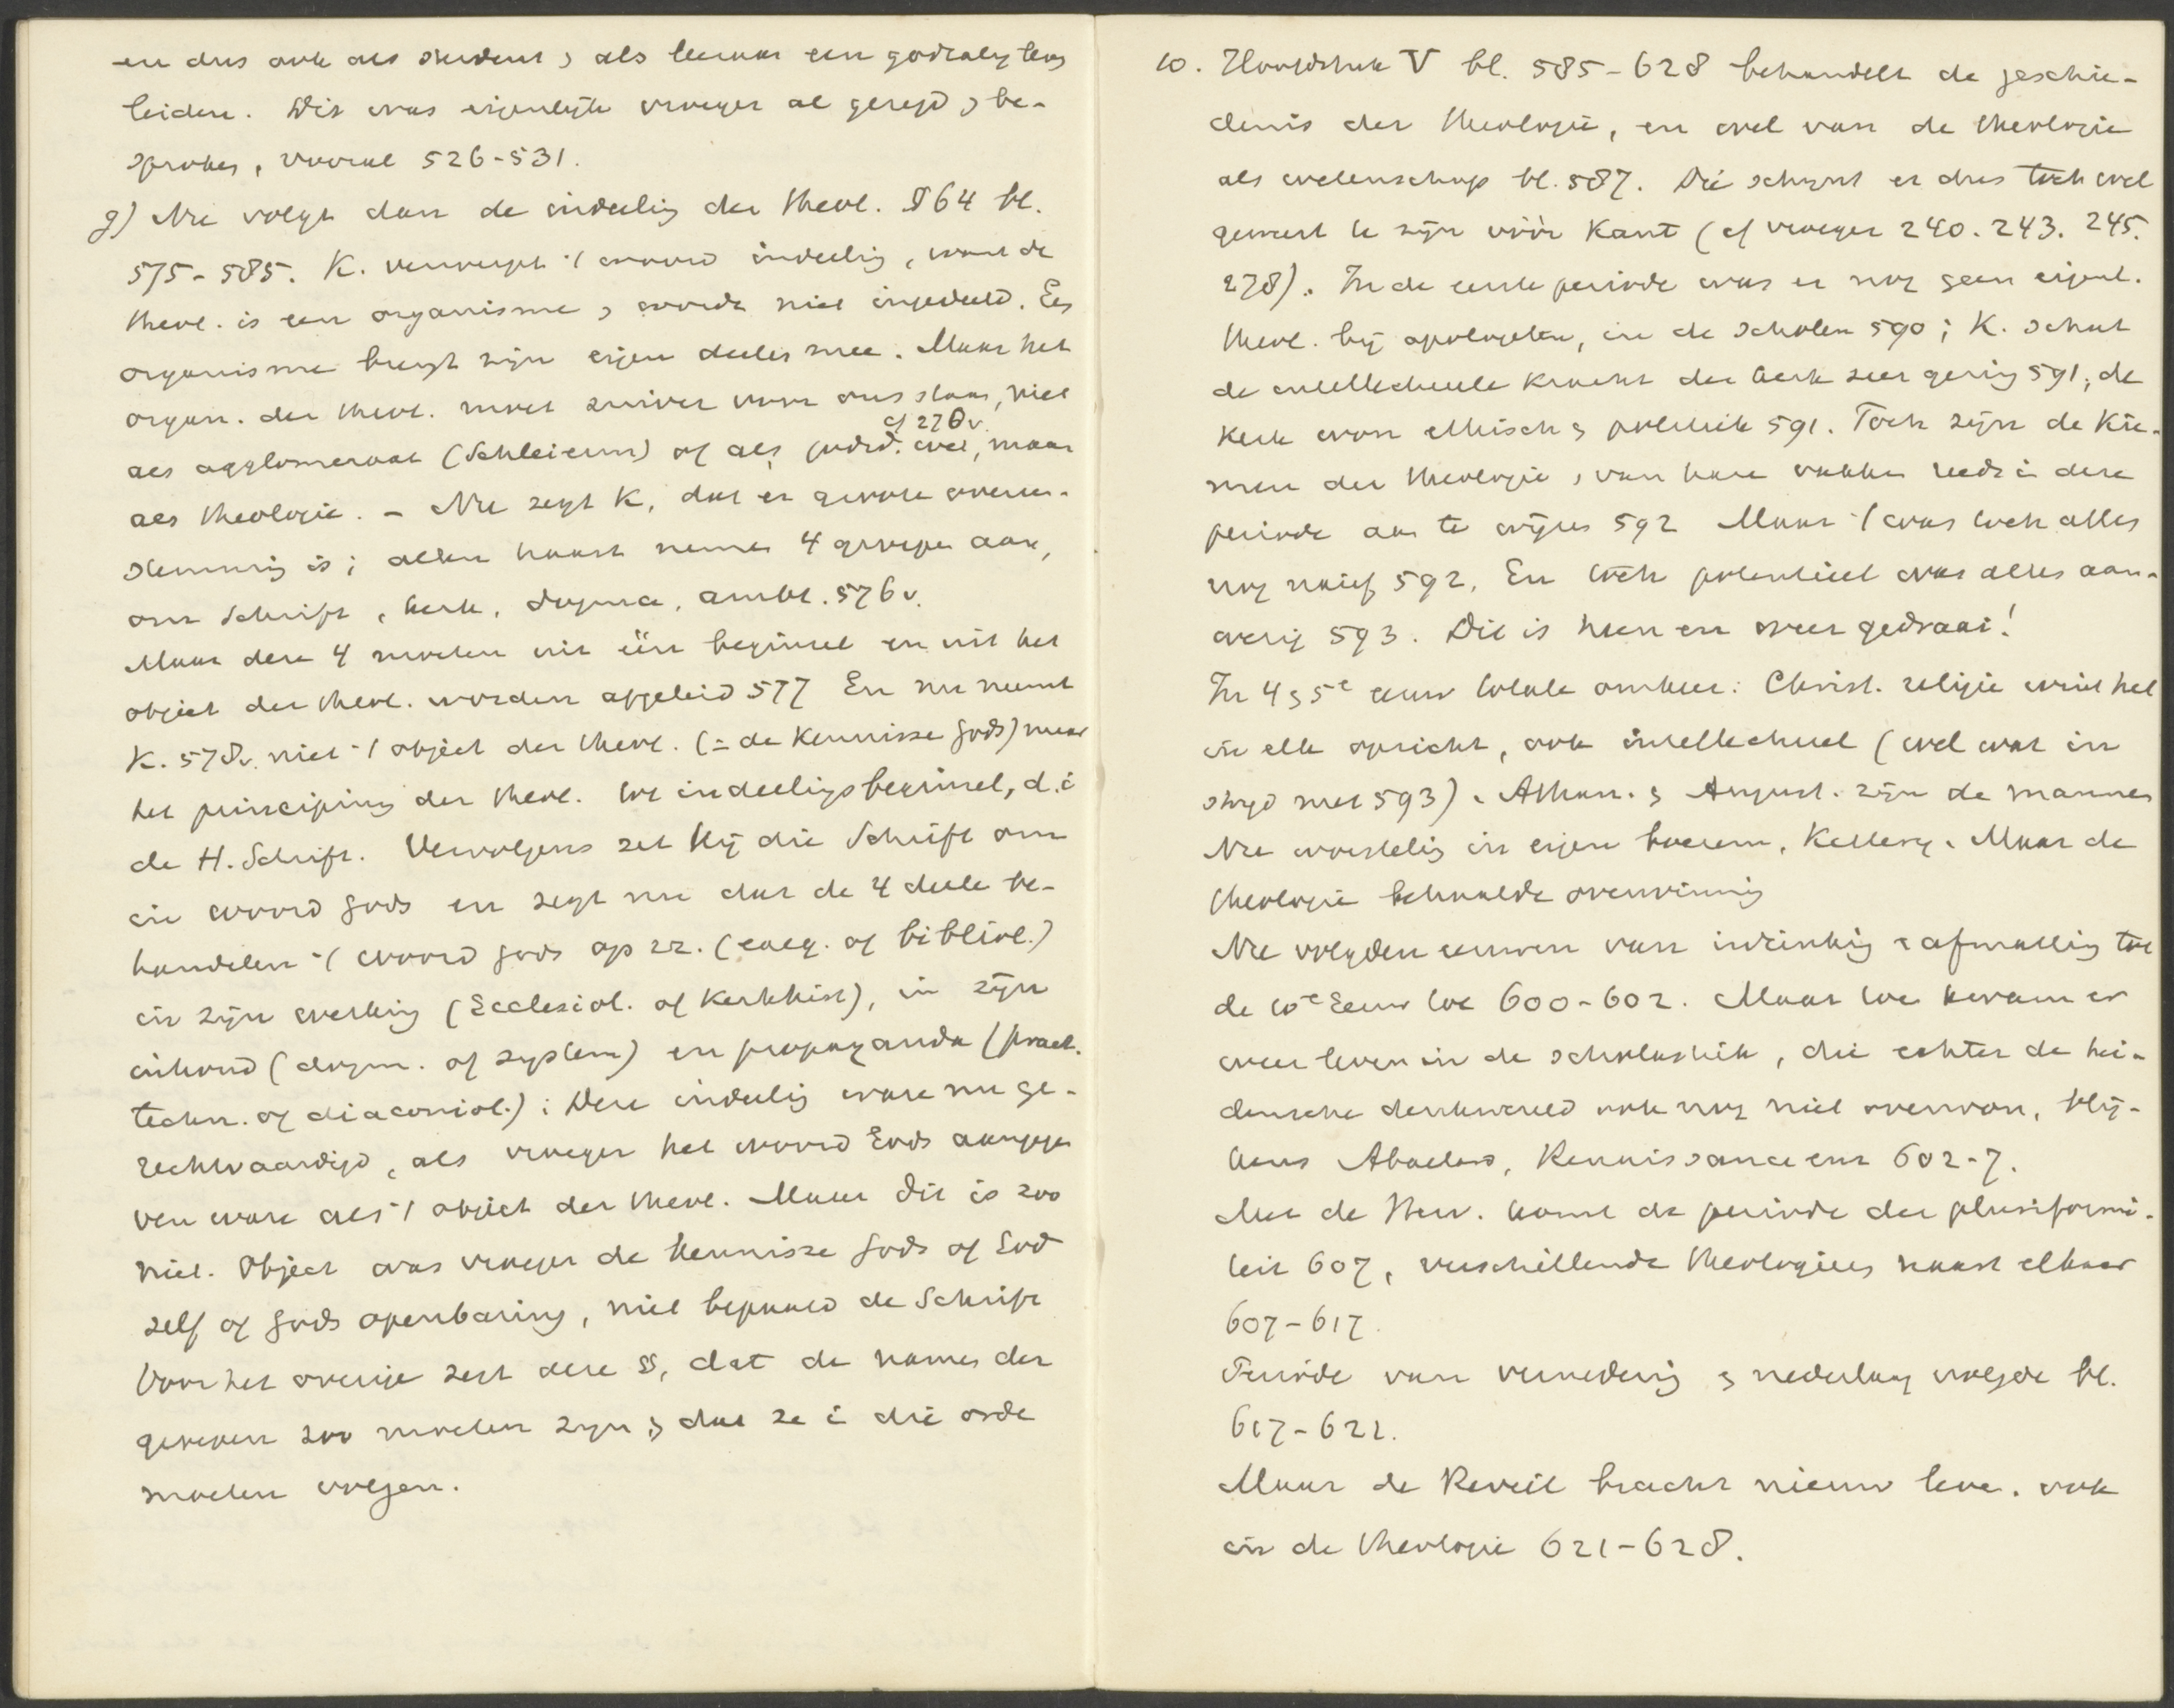 en dus ook als student & als leeraar een godzalig leven
leiden. Dit was eigenlijk vroeger al gezegd & be-
sproken, vooral 526-531.
g) Nu volgt dan de indeeling der theol. § 64 bl.
575-585. K. verwerpt 't woord indeeling, want de
theol. is een organisme & wordt niet ingedeeld. Een
organisme brengt zijn eigen deelen mee. Maar het
organ. der theol. moet zuiver voor ons staan, niet
cf 228v.
als agglomeraat (Schleierm) of als godsd. wet, maar
als theologie. - Nu zegt K, dat er groote overeen-
stemming is; allen haast nemen 4 groepen aan,
om Schrift, kerk, dogma, ambt. 576v.
Maar deze 4 moeten uit één beginsel en uit het
object der theol. worden afgeleid 577 En nu neemt
K. 578v. niet 't object der theol. (= de kennisse Gods) maar
het principium der theol. tot indeelingsbeginsel, d.i
de H. Schrift. Vervolgens zet hij die Schrift om
in woord Gods en zegt nu dat de 4 deelen be-
handelen 't woord Gods op zz. (exeg. of bibliol.)
in zijn werking (Ecclesiol. of Kerkhist), in zijn
inhoud (dogm. of systém) en propaganda (pract.
techn. of diaconiol.); Deze indeeling ware nu ge-
rechtvaardigd, als vroeger het woord Gods aangege-
ven ware als 't object der theol. Maar dit is zoo
niet. Object was vroeger de kennisse Gods of God
zelf of Gods openbaring, niet bepaald de Schrift
Voor het overige zegt deze §, dat de namen der
groepen zoo moeten zijn & dat ze in die orde
moeten volgen.
10. Hoofdstuk V bl. 585-628 behandelt de geschie-
denis der theologie, en wel van de theologie
als wetenschap bl. 587. Die schijnt er dus toch wel
geweest te zijn vóór Kant (cf vroeger 240. 243. 245.
278). In de eerste periode was er nog geen eigenl.
theol. bij apologeten, in de scholen 590; K. schat
de intellectueele kracht der kerk zeer gering 591; de
kerk won ethisch & politiek 591. Toch zijn de kie-
men der theologie & van hare vakken reeds in deze
periode aan te wijzen 592 Maar 't was toch alles
nog naief 592. En toch potentieel was alles aan-
wezig 593. Dit is heen en weer gedraai!
In 4 & 5e eeuw totale omkeer: Christ. religie wint het
in elk opzicht, ook intellectueel (wel wat in
strijd met 593). Athan. & August. zijn de mannen
Nu worsteling in eigen boezem, Ketterij. Maar de
theologie behaalde overwinning
Nu volgden eeuwen van inzinking & afmatting tot
de 10e Eeuw toe 600-602. Maar toe kwam er
weer leven in de scholastiek, die echter de hei-
densche denkwereld ook nog niet overwon, blij-
kens Abaelard, Renaissance enz 602-7.
Met de Herv. komt de periode der pluriformi-
teit 607, verschillende theologieën naast elkaar
607-617.
Periode van vernedering & nederlaag volgde bl.
617-621.
Maar de Reveil bracht nieuw leven. ook
in de theologie 621-628.